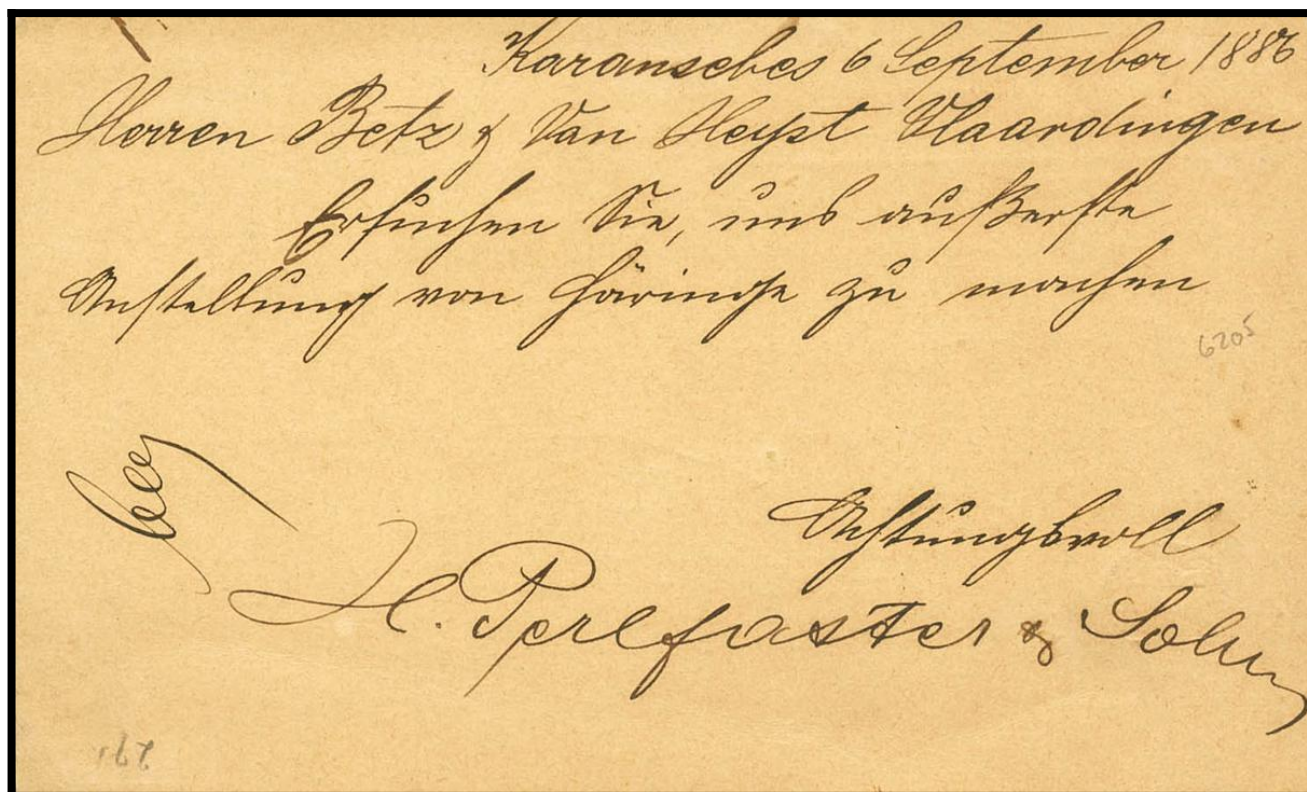 Karansebes 6 September 1886
Herren Betz & Van Heyst Vlaardingen
Ersuchen Sie, uns äußerste
Anstellung von Häringe zu machen
6205
Achtungsvoll
H. Perlfaster & Sohn
167